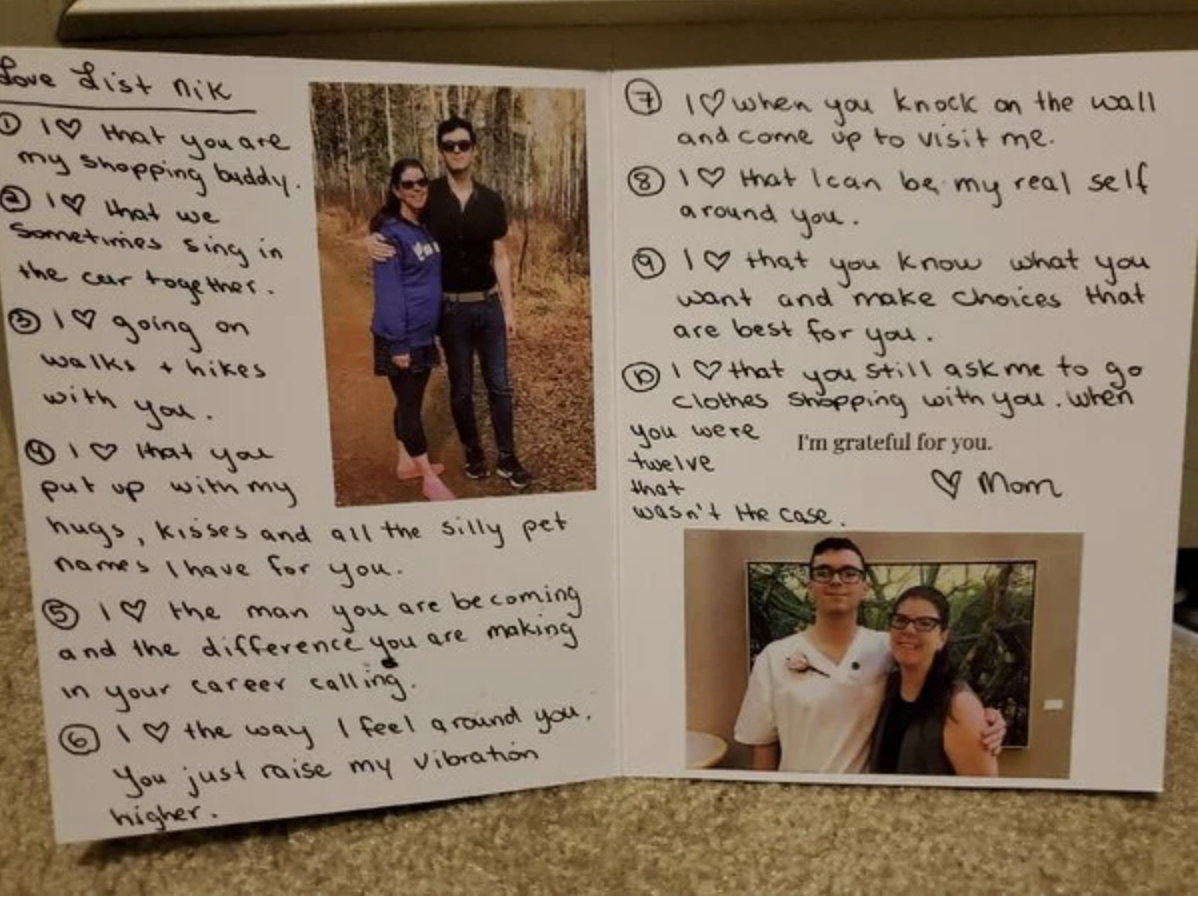 Love List Nik
① I ♡ that you are
my shopping buddy.
② I ♡ that we
sometimes sing in
the car together.
③ I ♡ going on
walks + hikes
with you.
④ I ♡ that you
put up with my
hugs, kisses and all the silly pet
names I have for you.
⑤ I ♡ the man you are becoming
and the difference you are making
in your career calling.
⑥ I ♡ the way I feel around you.
You just raise my vibration
higher.
⑦ I ♡ when you knock on the wall
and come up to visit me.
⑧ I ♡ that I can be my real self
around you.
⑨ I ♡ that you know what you
want and make choices that
are best for you.
⑩ I ♡ that you still ask me to go
clothes shopping with you. When
you were
twelve
that
wasn't the case.
I'm grateful for you.
♡ Mom